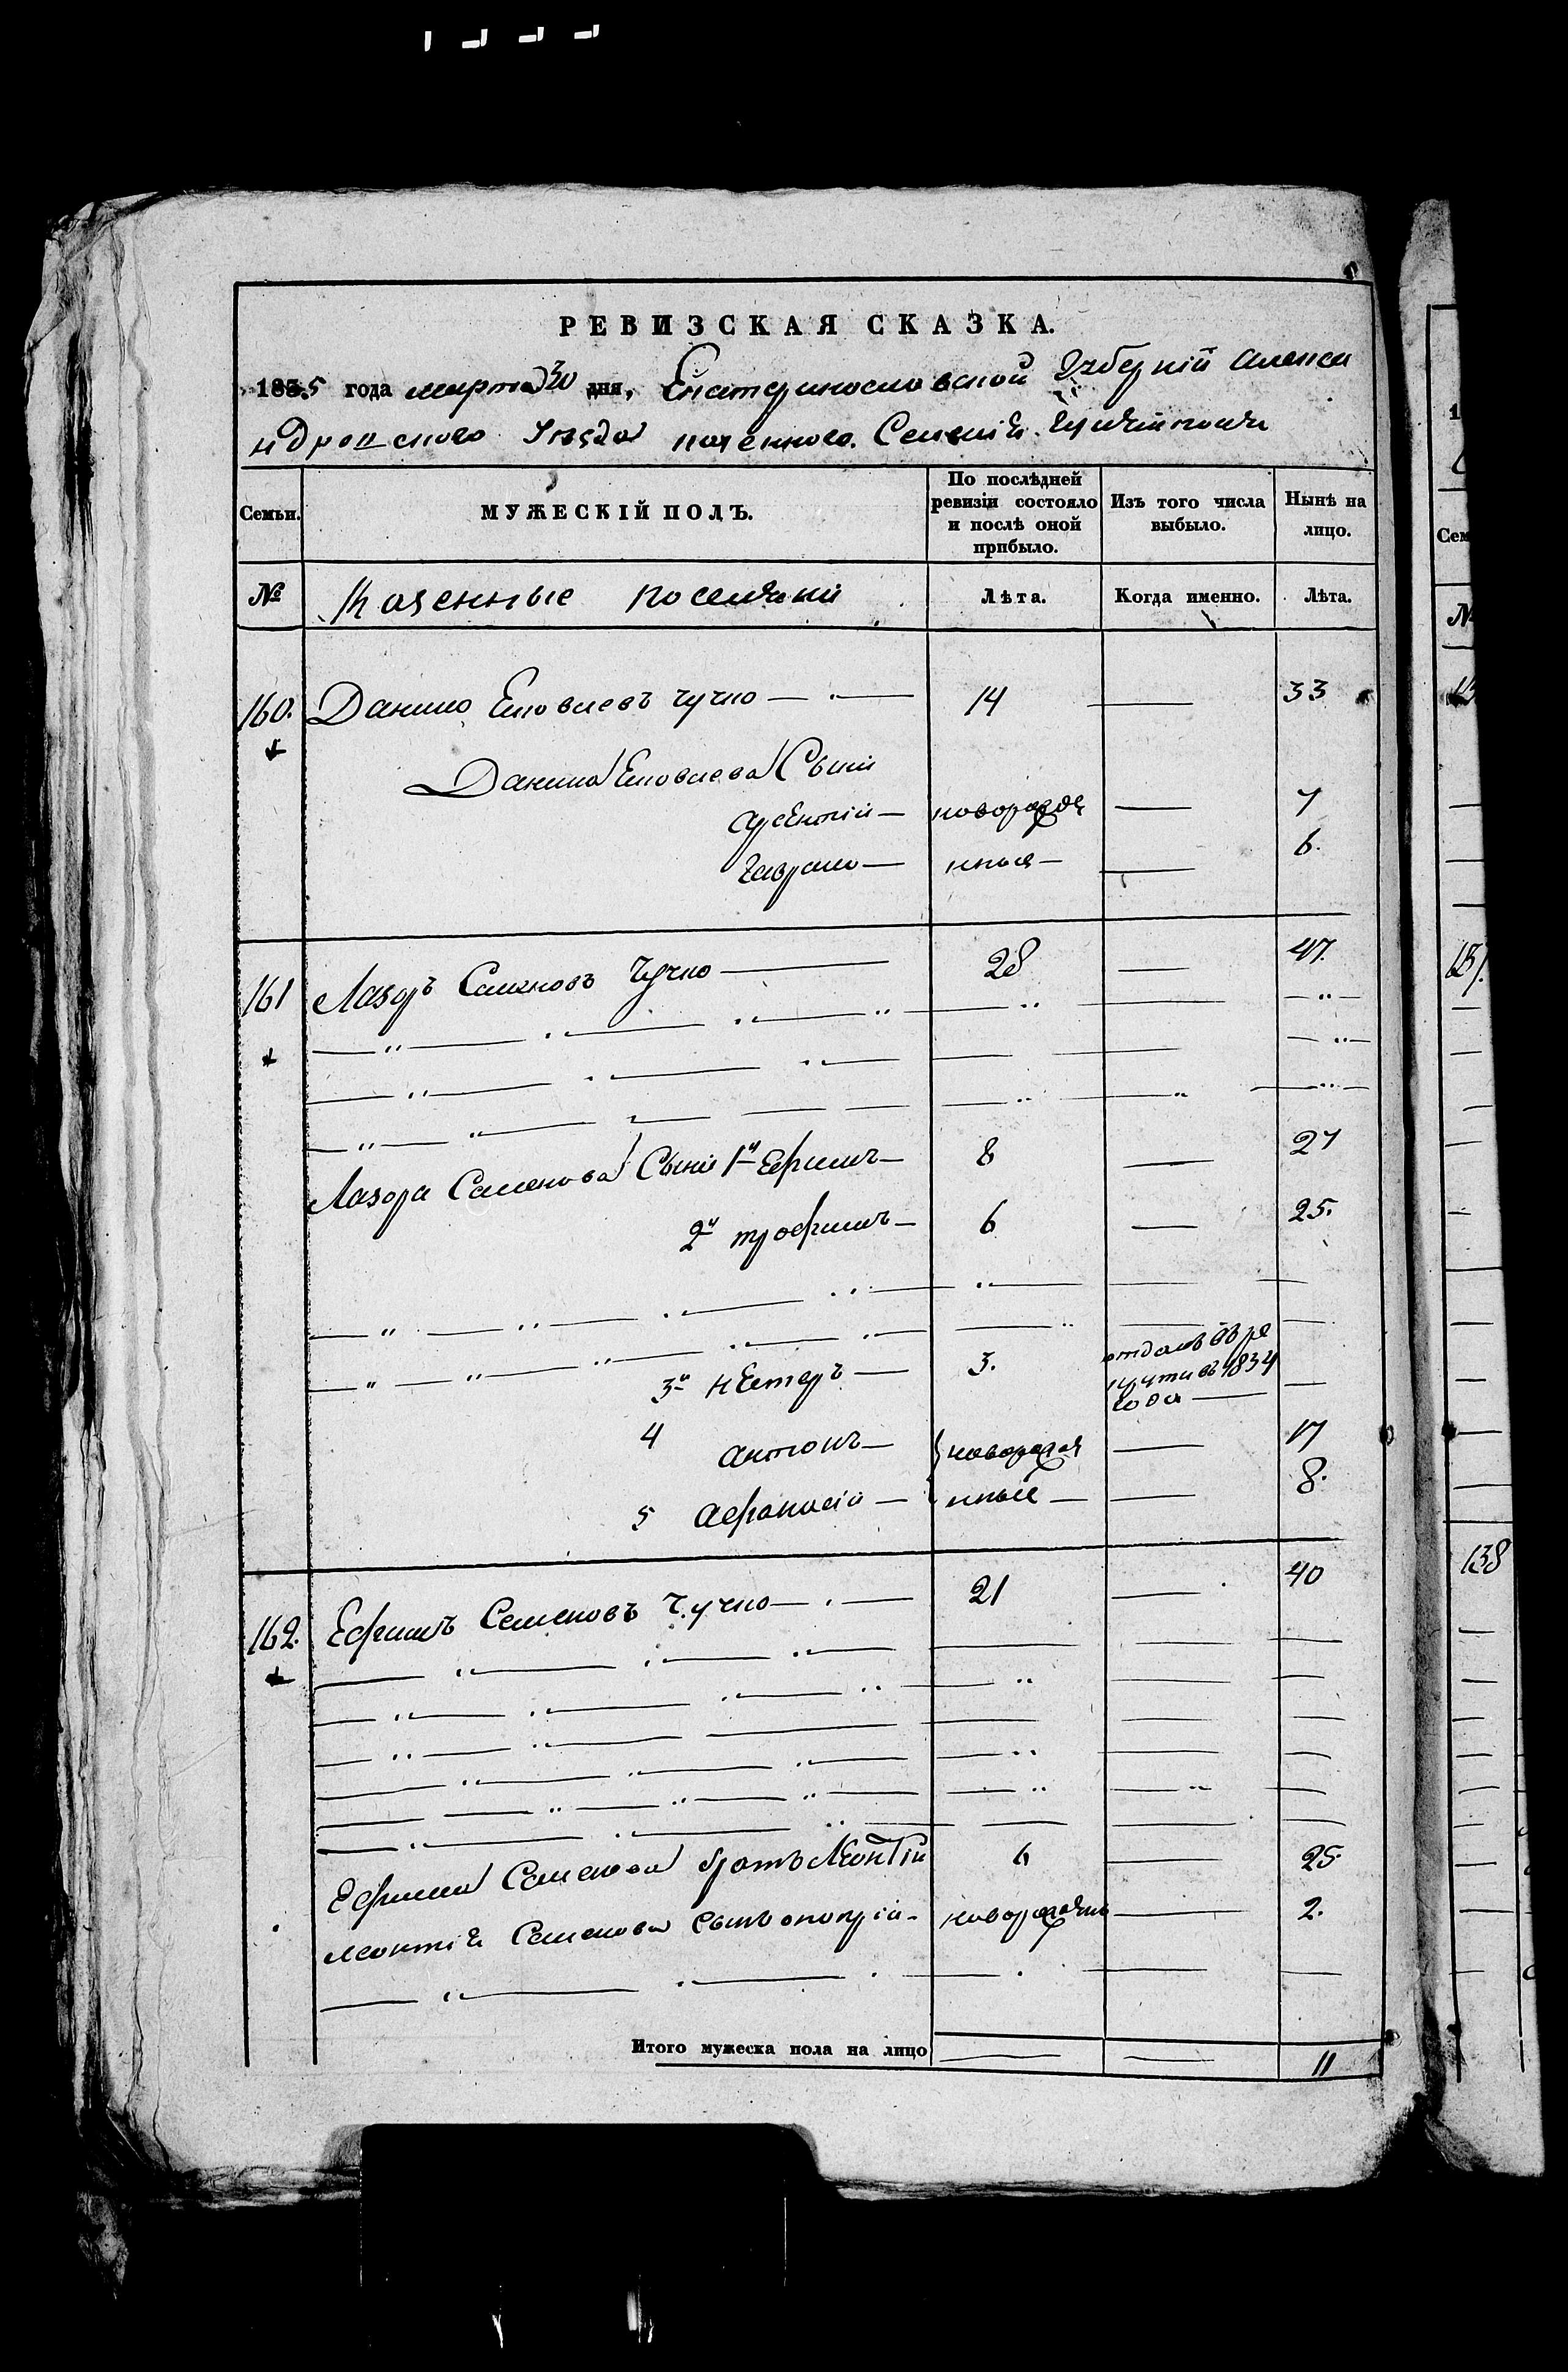 РЕВИЗСКАЯ СКАЗКА.
1835 года марта 30 дня, Екатеринославской Губерніи Алекса
ндровскаго Уезда казенного Селенія
Семьи. МУЖЕСКІЙ ПОЛЪ. По послѣдней ревизіи состояло и послѣ оной прибыло. Изъ того числа выбыло. Нынѣ на лицо.
№ Казенные поселяни Лѣта. Когда именно. Лѣта.
160. Данило Яковлевъ чучко 14 33
Данила Яковлева Сыни
Арсентій новорожде 7
Гаврило нныя 6.
161 Лазоръ Семеновъ Чучко 28 47.
Лазора Семенова Сыни 1й Ефимъ 8 27
2й трофимъ 6 25.
3й нестеръ 3. отданъ въ ре
крути въ 1834
года
4 антонъ новорожде 17
5 Афанасій нные 8.
162. Ефимъ Семеновъ Чучко 21 40
Ефима Семенова братъ Леонтій 6 25.
леонтія Семенова сынъ новорожденъ 2.
Итого мужеска пола на лицо 11
Сем
№
137.
138